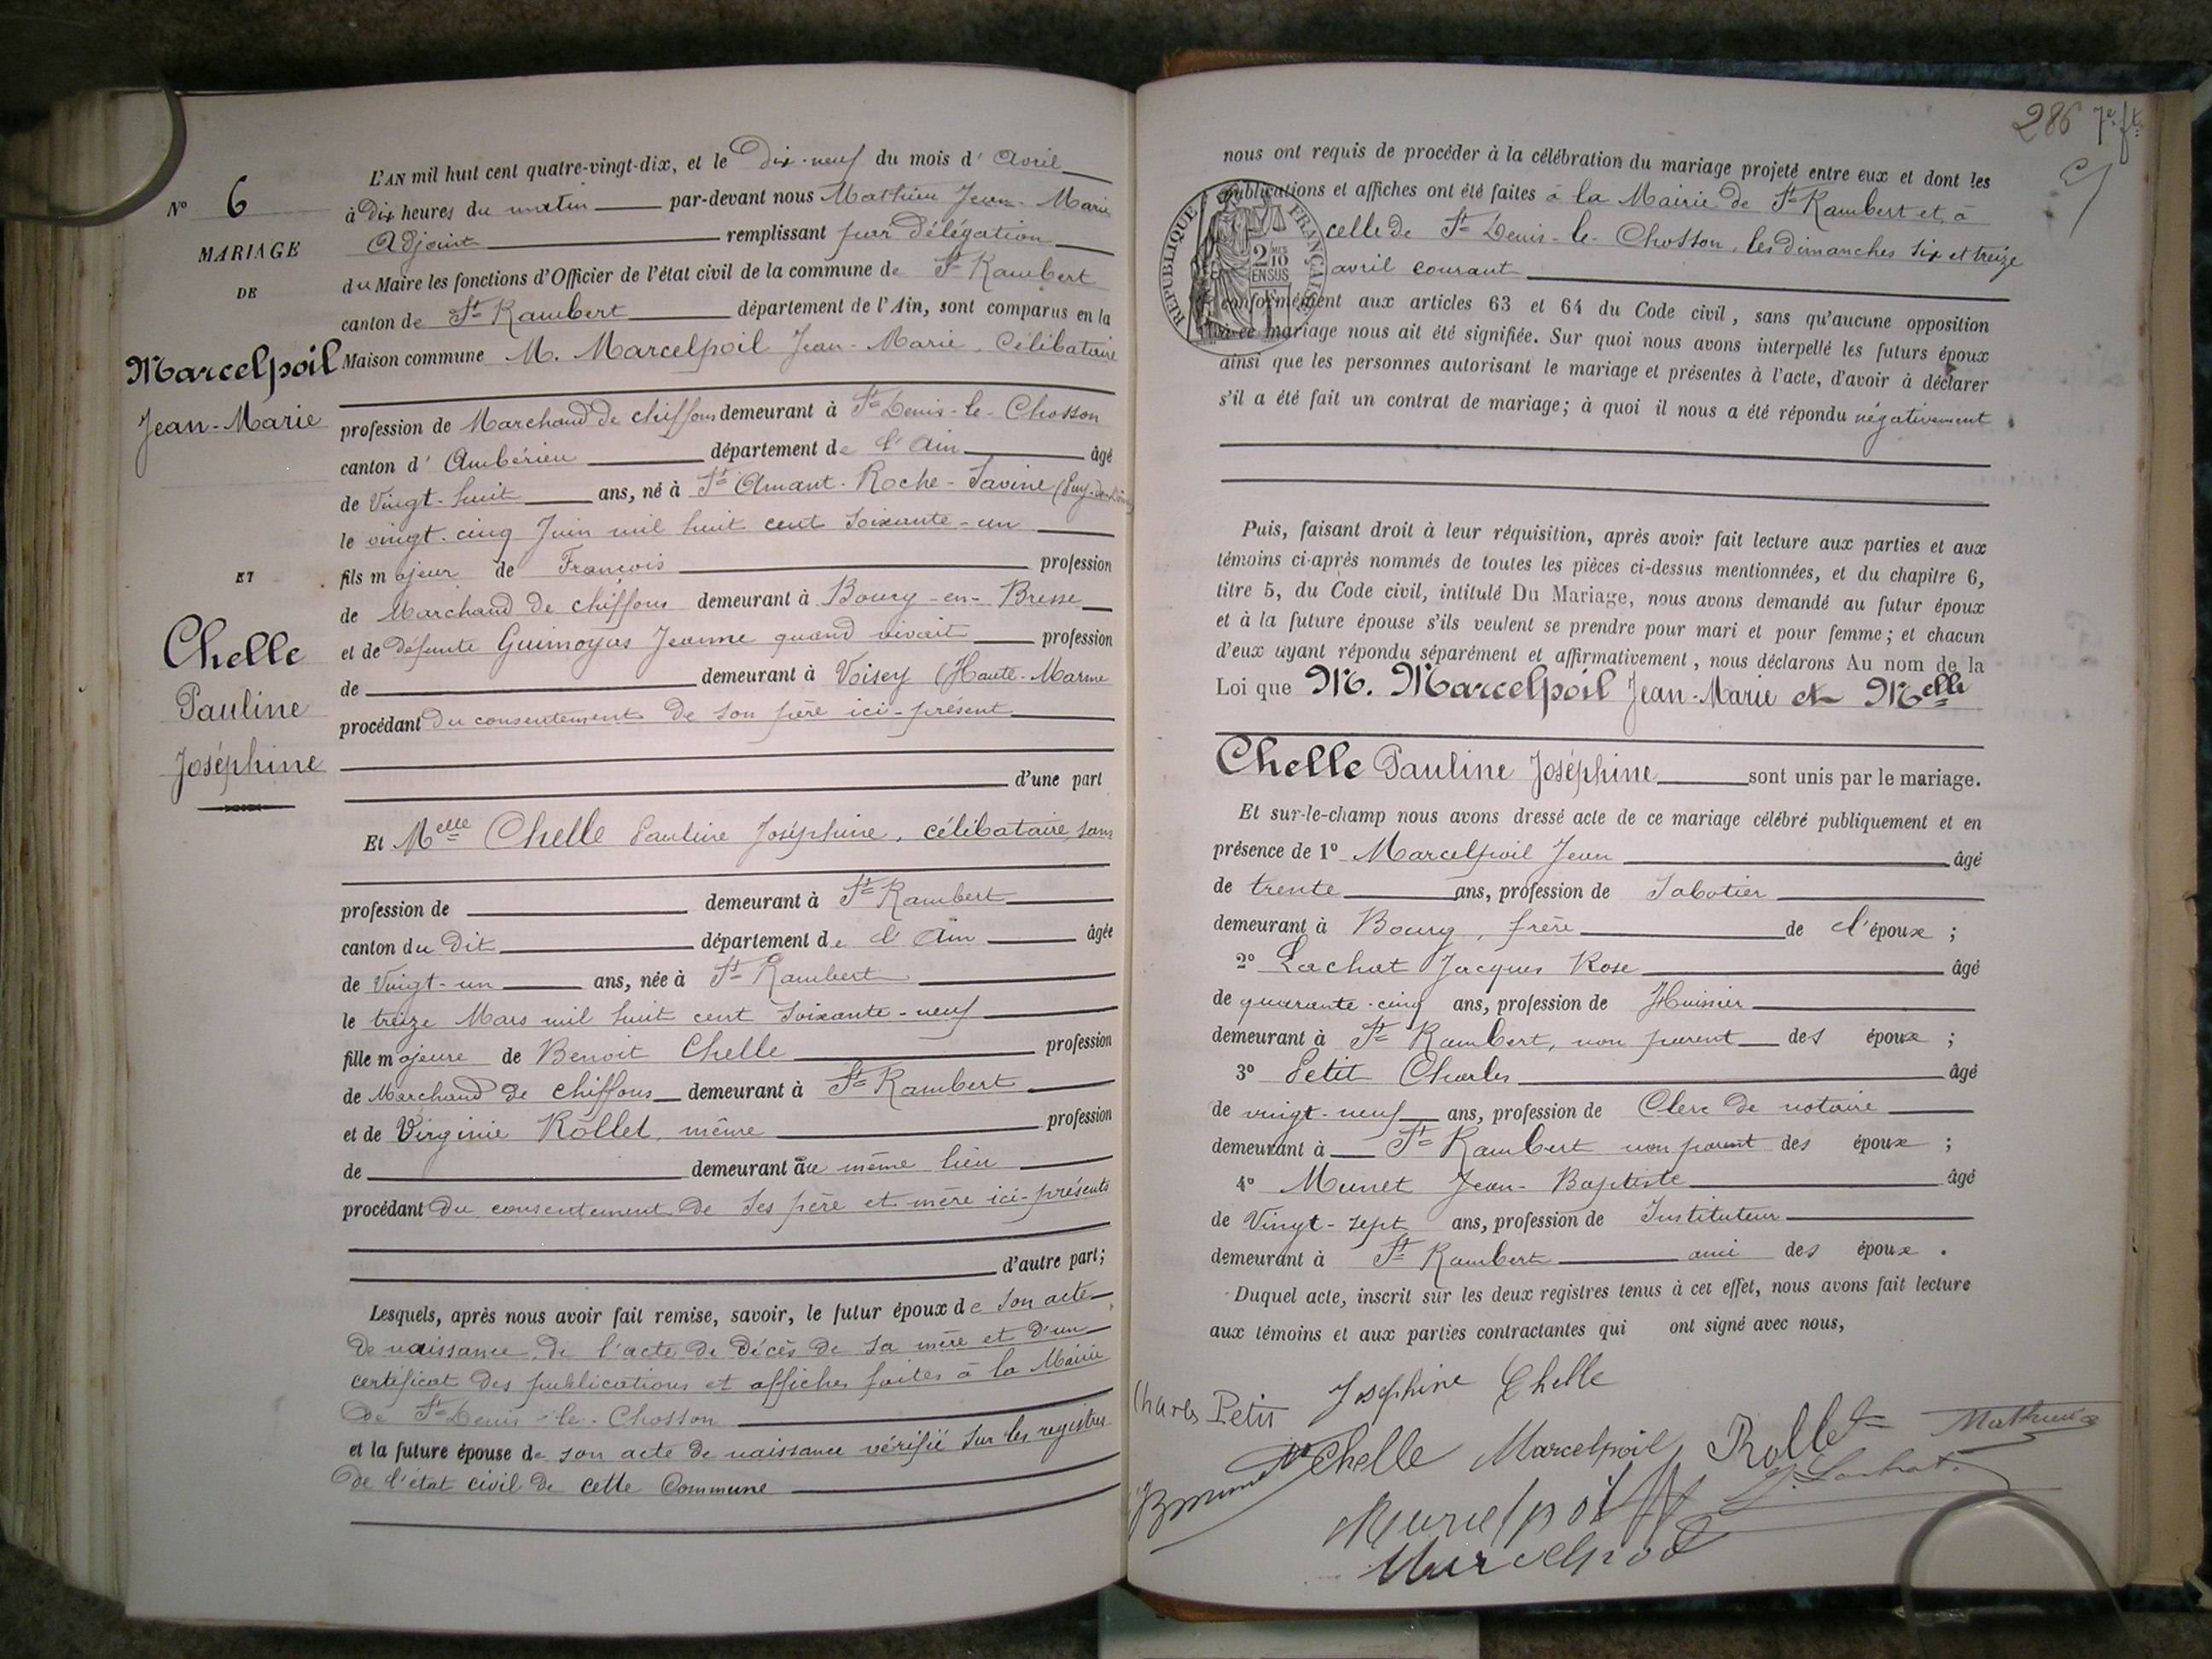 N° 6
MARIAGE
DE
Marcelpoil
Jean-Marie
ET
Chelle
Pauline
Joséphine
L'AN mil huit cent quatre-vingt-dix, et le Dix-neuf du mois d'Avril
à Dix heures du matin par-devant nous Mathieu Jean-Marie
Adjoint remplissant par délégation
du Maire les fonctions d'Officier de l'état civil de la commune de St Rambert
canton de St Rambert département de l'Ain, sont comparus en la
Maison commune M. Marcelpoil Jean-Marie, Célibataire
profession de Marchand de chiffons demeurant à St Denis-le-Chosson
canton d'Ambérieu département de l'Ain âgé
de Vingt-huit ans, né à St Amant-Roche-Savine (Puy-de-Dôme)
le vingt-cinq Juin mil huit cent soixante-un
fils majeur de François profession
de Marchand de chiffons demeurant à Bourg-en-Bresse
et de défunte Guimoyas Jeanne quand vivait profession
de demeurant à Voisey (Haute-Marne
procédant du consentement de son père ici-présent
d'une part
Et Melle Chelle Pauline Joséphine, célibataire, sans
profession de demeurant à St Rambert
canton du dit département de l'Ain âgée
de Vingt-un ans, née à St Rambert
le treize Mars mil huit cent soixante-neuf
fille majeure de Benoit Chelle profession
de Marchand de chiffons demeurant à St Rambert
et de Virginie Rollet, même profession
de demeurant au même lieu
procédant du consentement de ses père et mère ici-présents
d'autre part;
Lesquels, après nous avoir fait remise, savoir, le futur époux de son acte
de naissance, de l'acte de décès de sa mère et d'un
certificat des publications et affiches faites à la Mairie
de St Denis-le-Chosson
et la future épouse de son acte de naissance vérifié sur les registres
de l'état civil de cette Commune
286 7e ft
nous ont requis de procéder à la célébration du mariage projeté entre eux et dont les
publications et affiches ont été faites à la Mairie de St Rambert et à
celle de St Denis-le-Chosson, les dimanches six et treize
avril courant
RÉPUBLIQUE FRANÇAISE
2/10 EN SUS
conformément aux articles 63 et 64 du Code civil, sans qu'aucune opposition
mariage nous ait été signifiée. Sur quoi nous avons interpellé les futurs époux
ainsi que les personnes autorisant le mariage et présentes à l'acte, d'avoir à déclarer
s'il a été fait un contrat de mariage; à quoi il nous a été répondu négativement
Puis, faisant droit à leur réquisition, après avoir fait lecture aux parties et aux
témoins ci-après nommés de toutes les pièces ci-dessus mentionnées, et du chapitre 6,
titre 5, du Code civil, intitulé Du Mariage, nous avons demandé au futur époux
et à la future épouse s'ils veulent se prendre pour mari et pour femme; et chacun
d'eux ayant répondu séparément et affirmativement, nous déclarons Au nom de la
Loi que M. Marcelpoil Jean-Marie et Melle
Chelle Pauline Joséphine sont unis par le mariage.
Et sur-le-champ nous avons dressé acte de ce mariage célébré publiquement et en
présence de 1° Marcelpoil Jean âgé
de trente ans, profession de Sabotier
demeurant à Bourg, frère de l'époux;
2° Lachat Jacques Rose âgé
de quarante-cinq ans, profession de Huissier
demeurant à St Rambert, non parent des époux;
3° Petit Charles âgé
de vingt-neuf ans, profession de Clerc de notaire
demeurant à St Rambert non parent des époux;
4° Munet Jean-Baptiste âgé
de Vingt-sept ans, profession de Instituteur
demeurant à St Rambert ami des époux.
Duquel acte, inscrit sur les deux registres tenus à cet effet, nous avons fait lecture
aux témoins et aux parties contractantes qui ont signé avec nous,
Charles Petit Joséphine Chelle
Chelle Marcelpoil Rollet Mathieu
J. Lachat
Marcelpoil
Marcelpoil